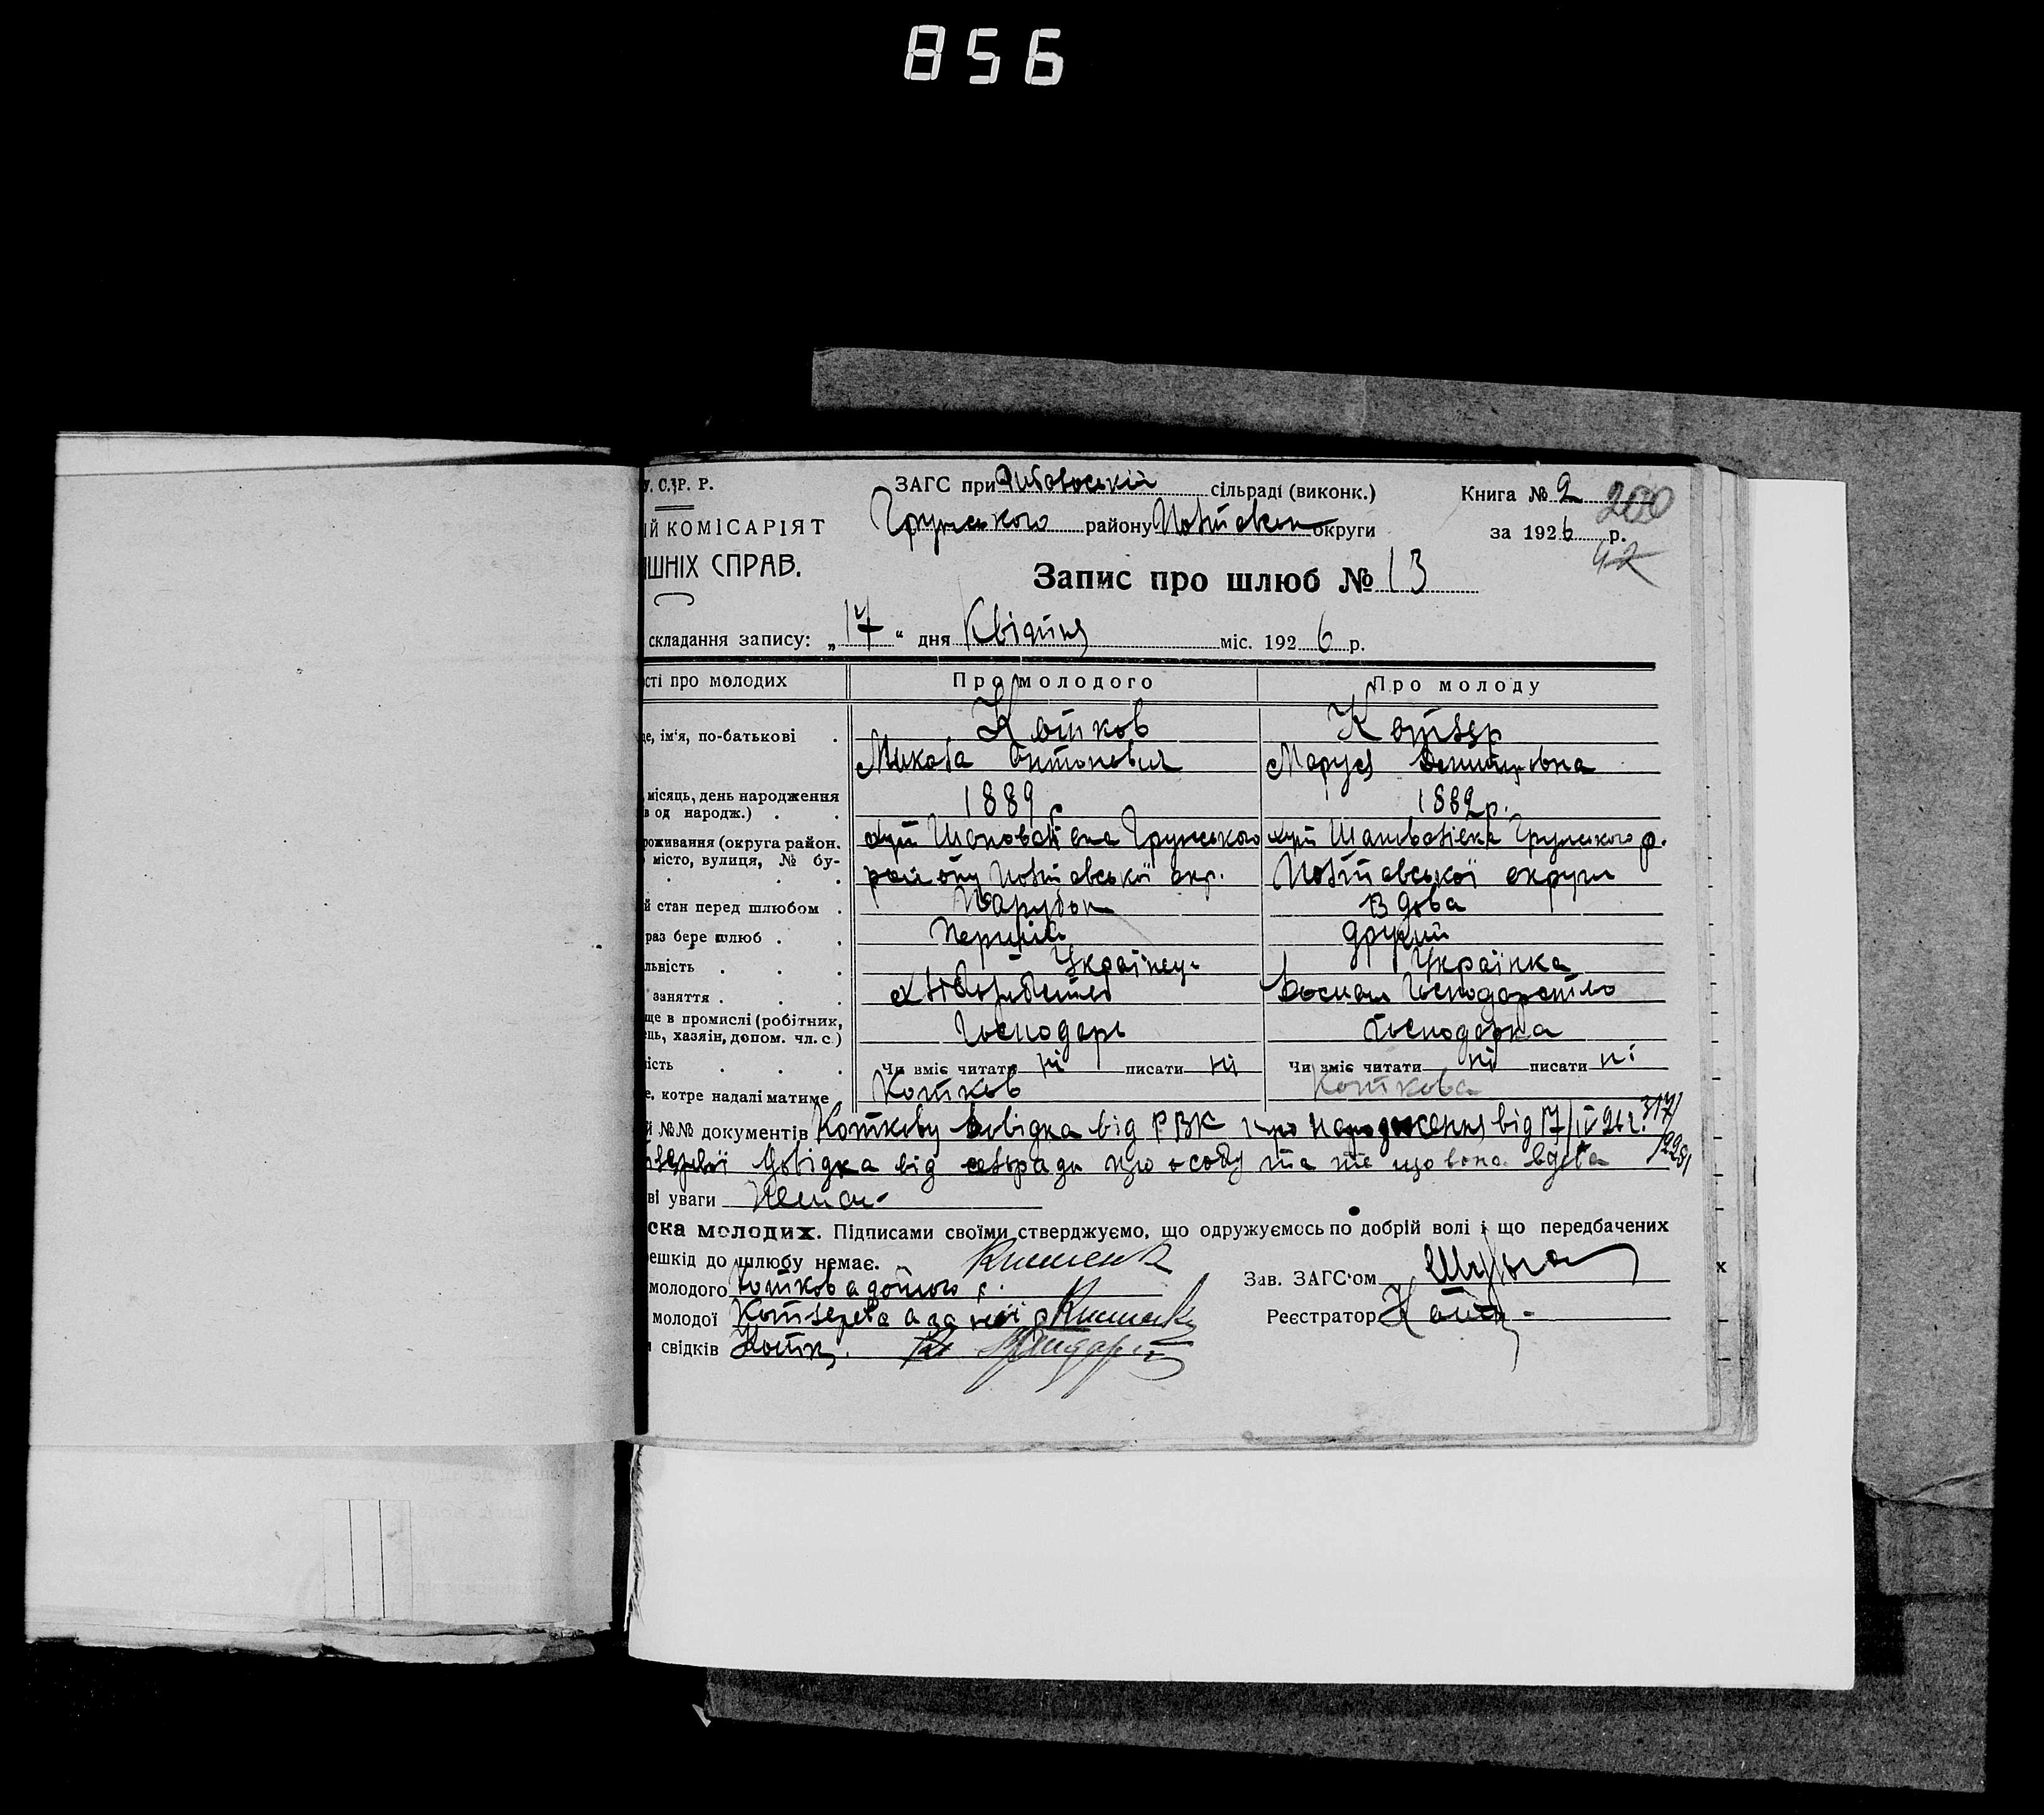 856
У. С. Р. Р.
ЗАГС при сільраді (виконк.)
Книга № 2
200
ИЙ КОМІСАРІЯТ
Грунського району Полтавськ округи
за 1926 р.
42
ІШНІХ СПРАВ.
Запис про шлюб № 13
складання запису: „17“ дня Квітня міс. 1926 р.
сті про молодих
Про молодого
Про молоду
Котков
ще, ім'я, по-батькові
Микола Антонович
Маруся
місяць, день народження
1889 р
1882 р.
в од народж.)
роживання (округа район.
хут Грунського
хут Грунського р.
місто, вулиця, № бу-
району Полтавської окр.
Полтавської округи
й стан перед шлюбом
Парубок
Вдова
раз бере шлюб
Перший
другий
льність
Українець
Українка
заняття
Хліборобство
Господарство
ще в промислі (робітник,
ець, хазяїн, допом. чл. с.)
Господарь
Господарка
ість
Чи вміє читати ні писати ні
Чи вміє читати ні писати ні
е, котре надалі матиме
Котков
Коткова
й №№ документів Коткову довідка від РВК про народження від 17/IV 26 г.
довідка від сельради про особу та те що вона вдова
ві уваги Нема
ска молодих. Підписами своїми стверджуємо, що одружуємось по добрій волі і що передбачених
решкід до шлюбу немає.
Зав. ЗАГС'ом
молодого Котков а
молодої а за неї
Реєстратор
свідків